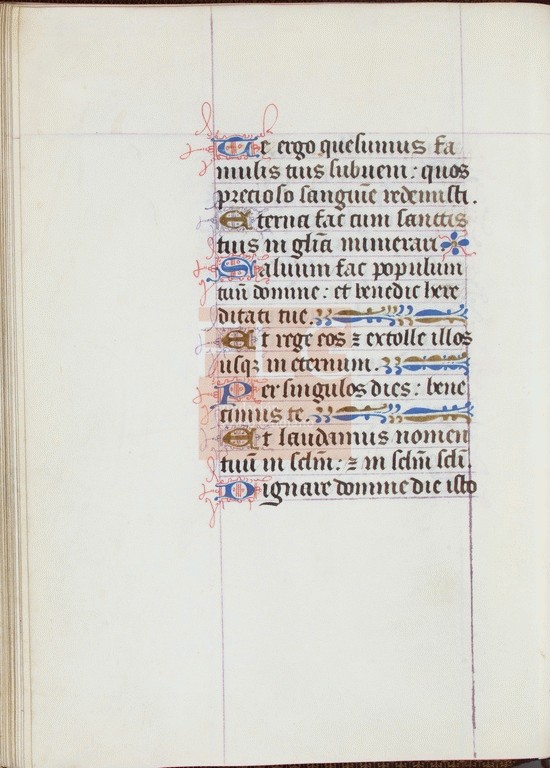 Te ergo quesumus fa
mulis tuis subueni: quos
precioso sanguīe redemisti.
Eterna fac cum sanctis
tuis in glīa numerari.
Saluum fac populum
tuū domine: et benedic here
ditati tue.
Et rege eos ⁊ extolle illos
usqꝫ in eternum.
Per singulos dies: bene
cimus te.
Et laudamus nomen
tuū in sclm̄: ⁊ in sclm̄ scli̅
Dignare domine die isto